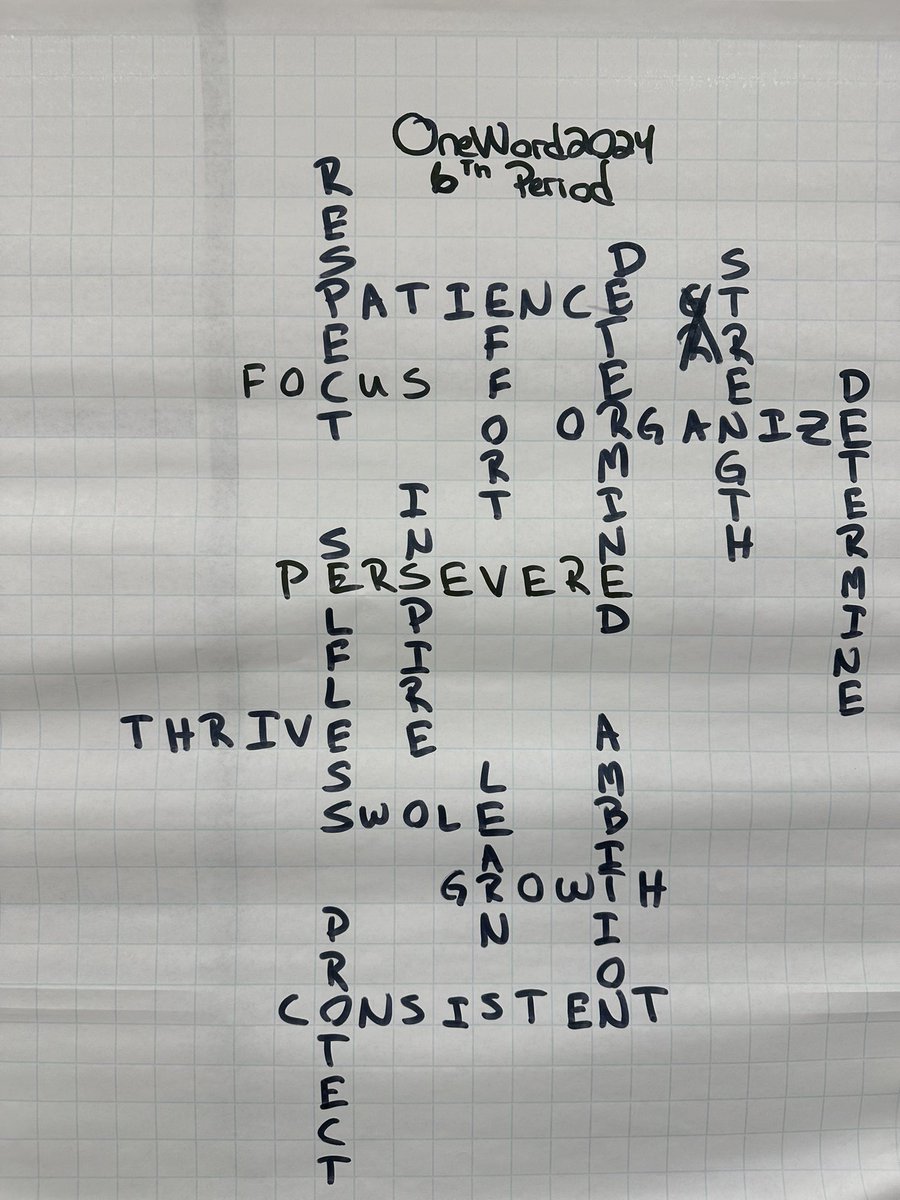 OneWord2024
6Th Period
RESPECT
PATIENCE
DETERMINED
STRENGTH
EFFORT
FOCUS
ORGANIZE
DETERMINE
INSPIRE
SELFLESS
PERSEVERE
THRIVE
AMBITION
LEARN
SWOLE
GROWTH
PROTECT
CONSISTENT